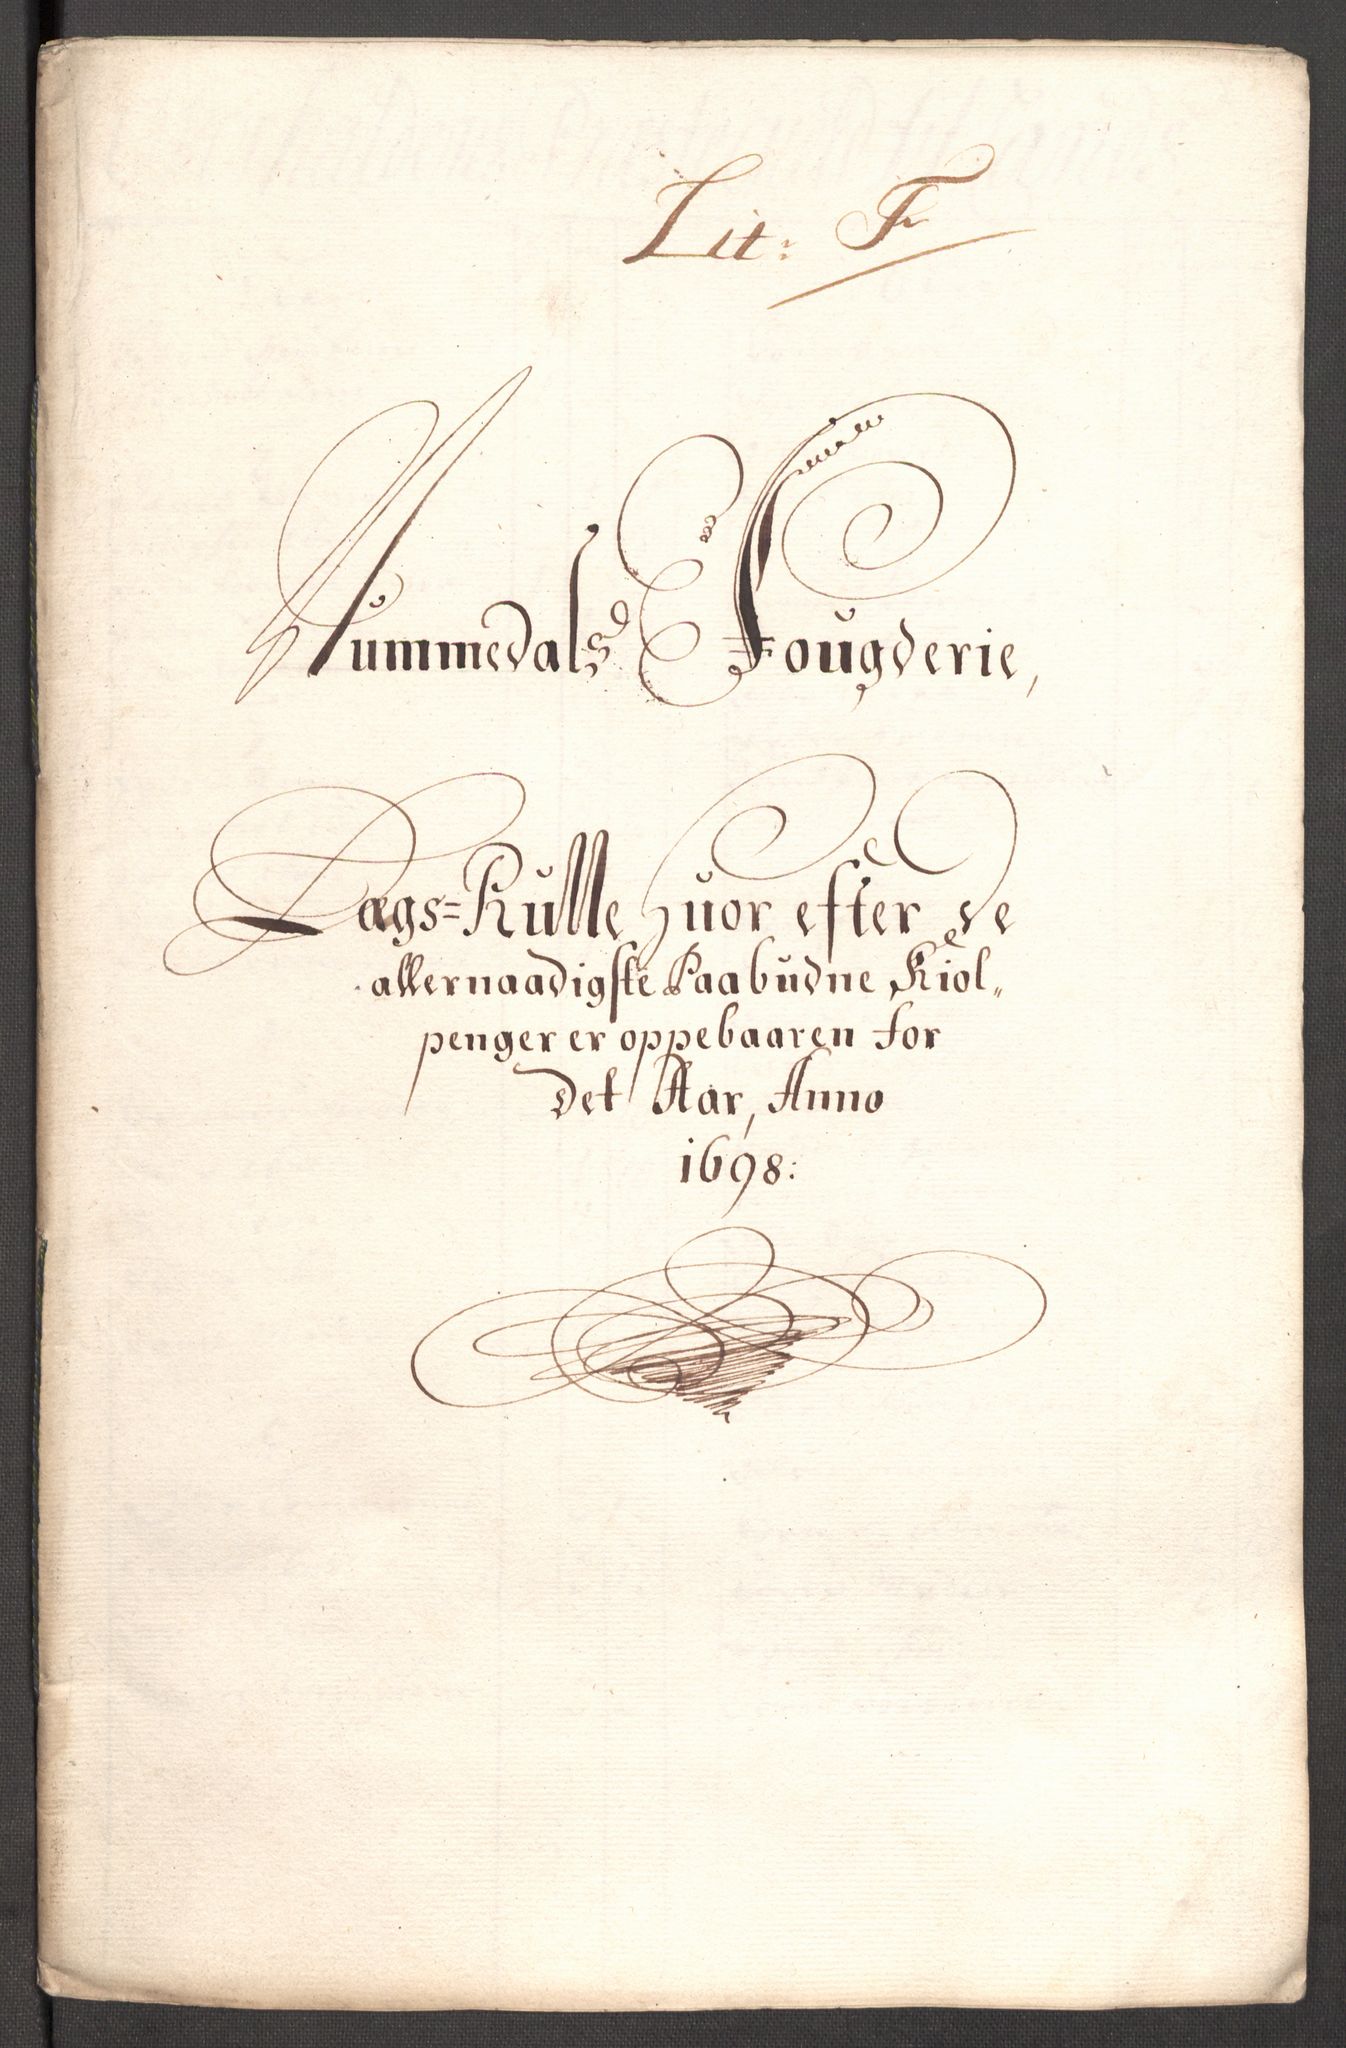 Lit: F
Nummedals Fougderie,
Lægs=Rulle huor efter de
allernaadigste Paabudne Kiol„
penger er oppebaaren for
det Aar, Anno
1698: